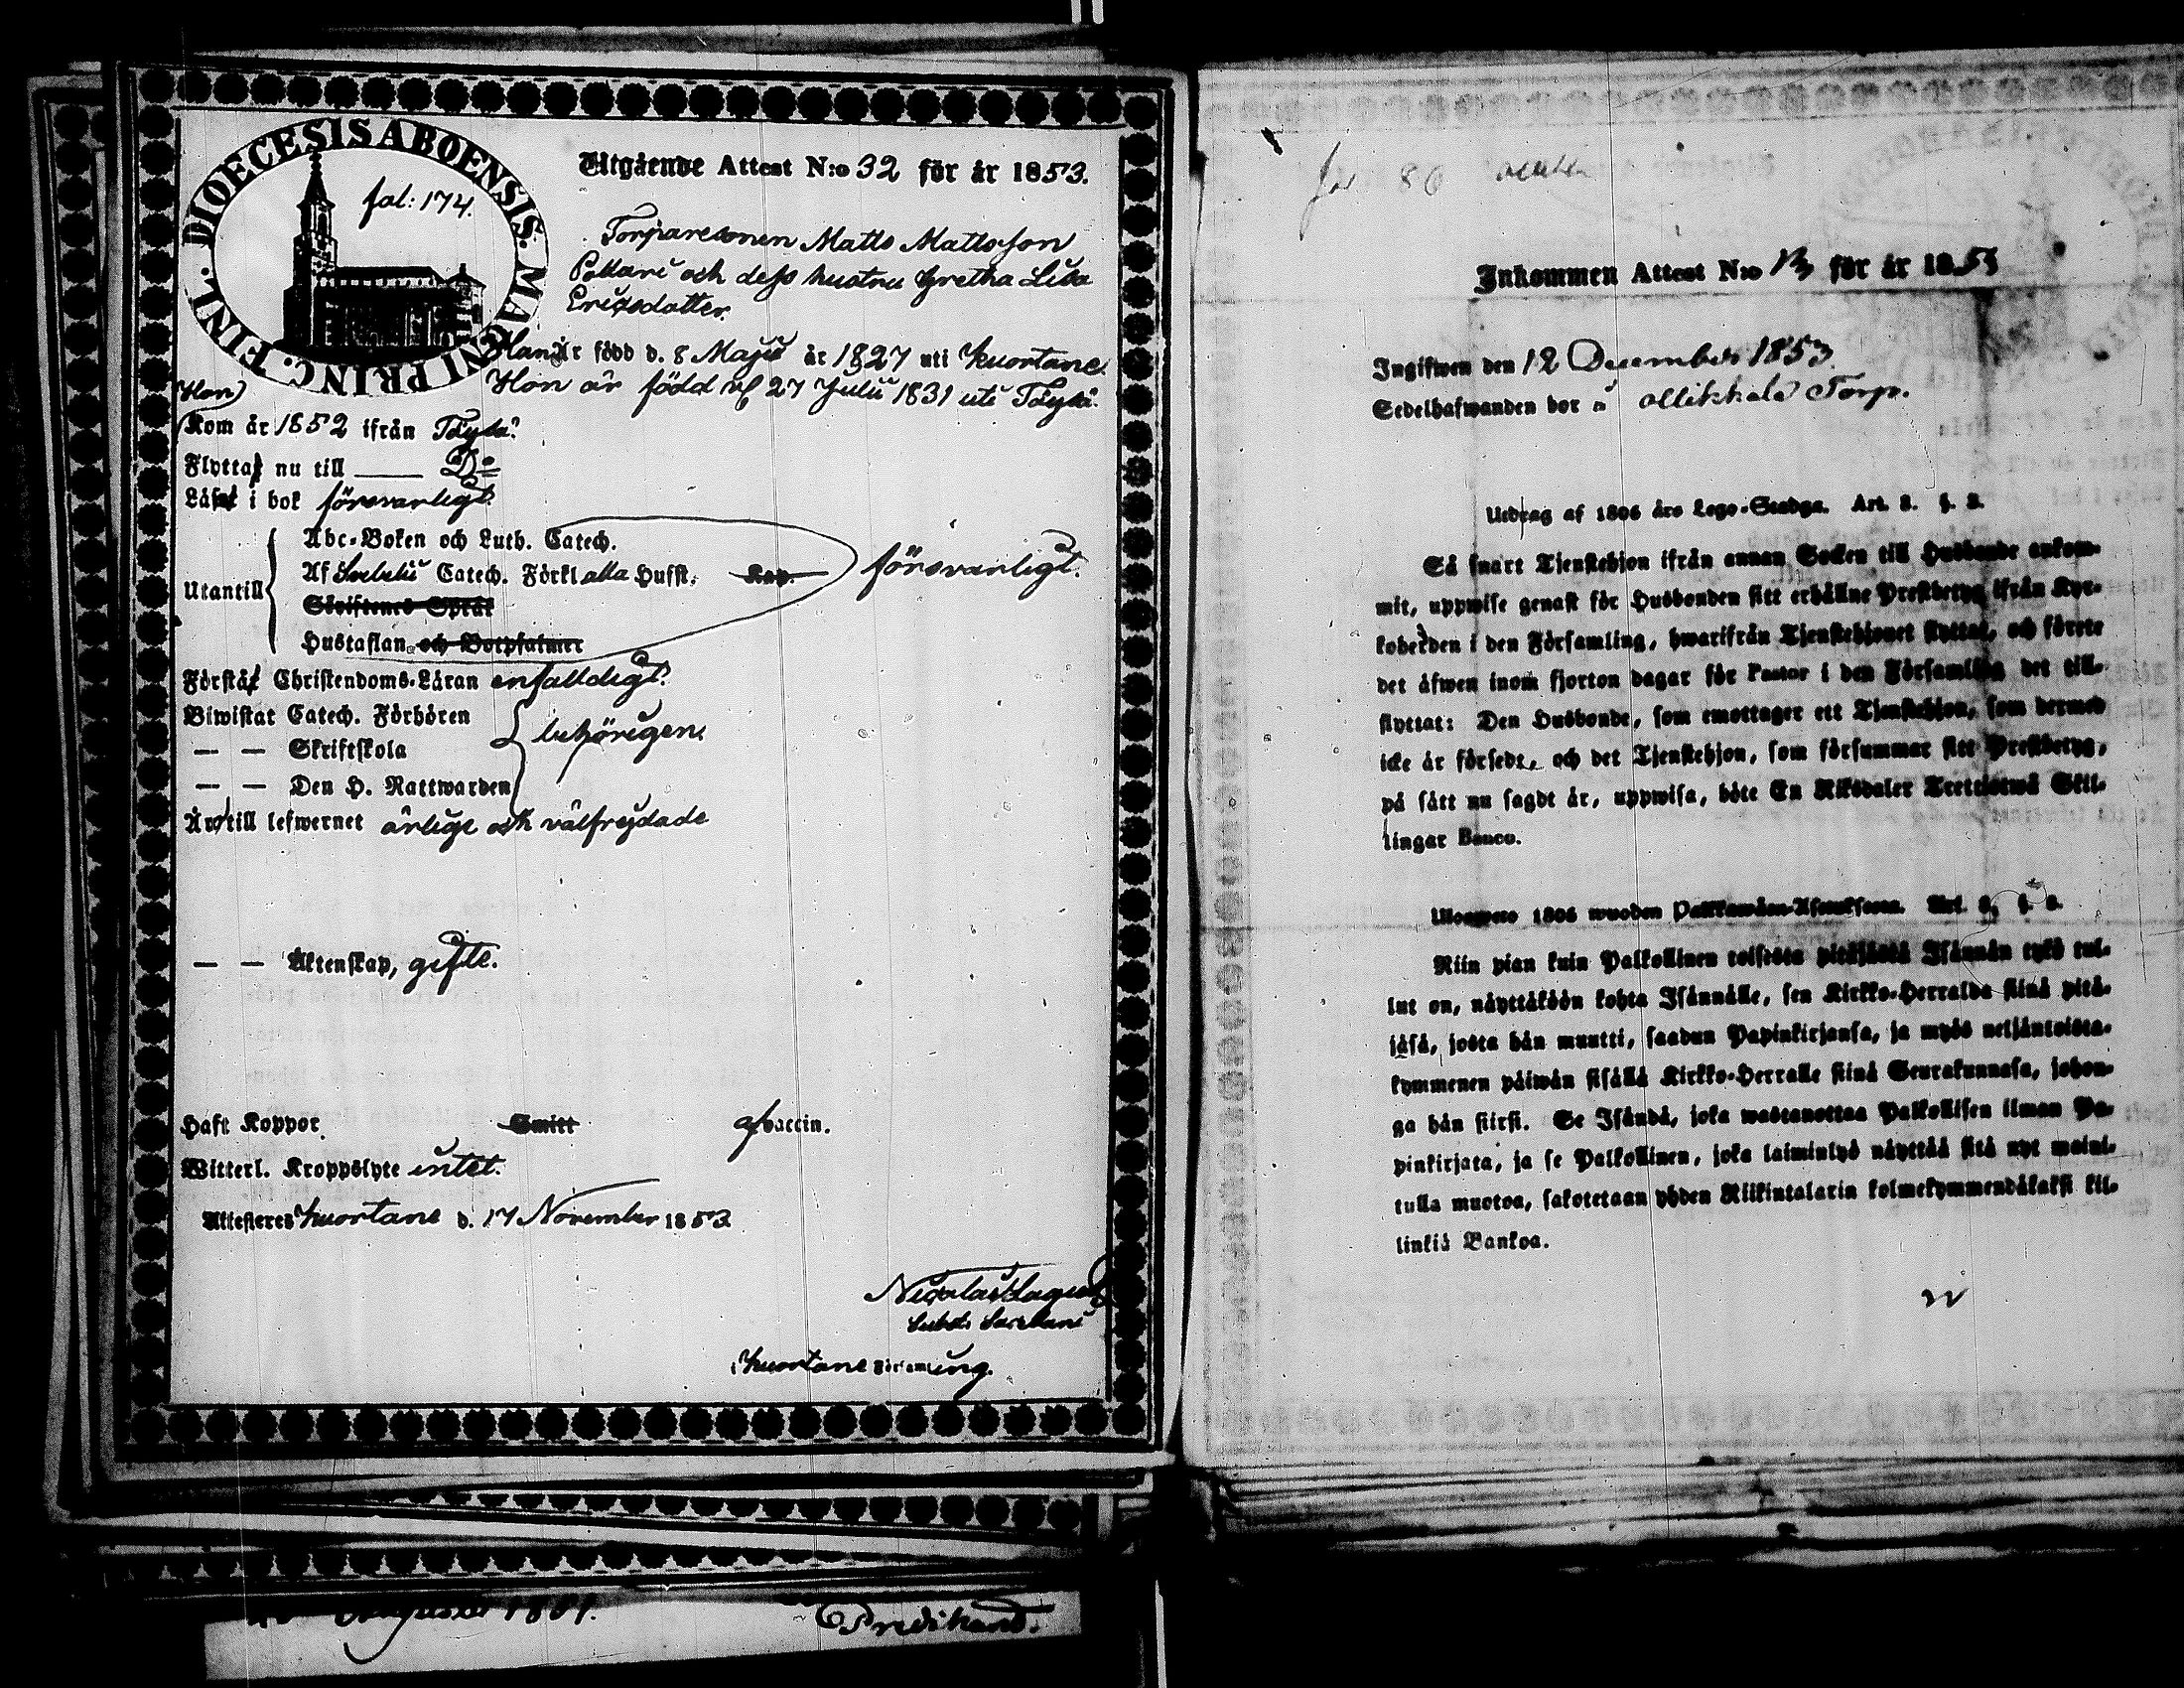 DIOECESIS ABOENSIS. MAGNI PRINC. FINL.
fol: 174.
Utgående Attest N:o 32 för år 1853.
Torparesonen Matts Mattsson
Pollari och dess hustru Gretha Lisa
Ericsdotter.
Han är född d. 8 Maji år 1827 uti Kuortane.
Hon är född d. 27 Julii 1831 uti Töysä.
(Hon)
Kom år 1852 ifrån Töysä.
Flytta nu till — Do
Läsa i bok försvarligt.
Utantill
Abc-Boken och Luth. Catech.
Af Svebelii Catech. Förkl alla Hufst. Kap.
Skriftenes Språk
Hustaflan och Botpsalmer
försvarligt.
Förstå Christendoms-Läran enfaldigt.
Biwistat Catech. Förhören
— — Skriftskola
— — Den H. Nattwarden
behörigen.
Äro till lefwernet ärlige och välfrejdade
— — Äktenskap, gifte.
Haft Koppor Smitt af vaccin.
Witterl. Kroppslyte intet.
Attesteres Kuortane d. 17 November 1853.
Nicolaus
i Kuortane Församling.
Augusti
Predikant.
fol 86
Inkommen Attest N:o 13 för år 1853
Ingifwen den 12 December 1853.
Sedelhafwanden bor å Ollikkala Torp.
Utdrag af 1805 års Lego-Stadga. Art. 2. §. 2.
Så snart Tjenstehjon ifrån annan Socken till Husbonde ankom-
mit, uppwise genast för Husbonden sitt erhållne Prestbetyg ifrån Kyr-
koherden i den Församling, hwarifrån Tjenstehjonet flyttat, och förete
det äfwen inom fjorton dagar för Pastor i den Församling det till-
flyttat: Den Husbonde, som emottager ett Tjenstehjon, som dermed
icke är försedt, och det Tjenstehjon, som försummar sitt Prestbetyg,
på sätt nu sagdt är, uppwisa, böte En Riksdaler Trettiotwå Skil-
lingar Banco.
Ulosweto 1805 wuoden Palkkawäen-Asetuksesta. Art. 2. §. 2.
Niin pian kuin Palkollinen toisesta pitäjästä Isännän tykö tul-
lut on, näyttäköön kohta Isännälle, sen Kirkko-Herralda siinä pitä-
jäsä, josta hän muutti, saadun Papinkirjansa, ja myös neljäntoista-
kymmenen päiwän sisällä Kirkko-Herralle siinä Seurakunnasa, johon-
ga hän siirsi. Se Isändä, joka wastanottaa Palkollisen ilman Pa-
pinkirjata, ja se Palkollinen, joka laiminlyö näyttää sitä nyt maini-
tulla muotoa, sakotetaan yhden Riikintalarin kolmekymmendäkaksi kil-
linkiä Bankoa.